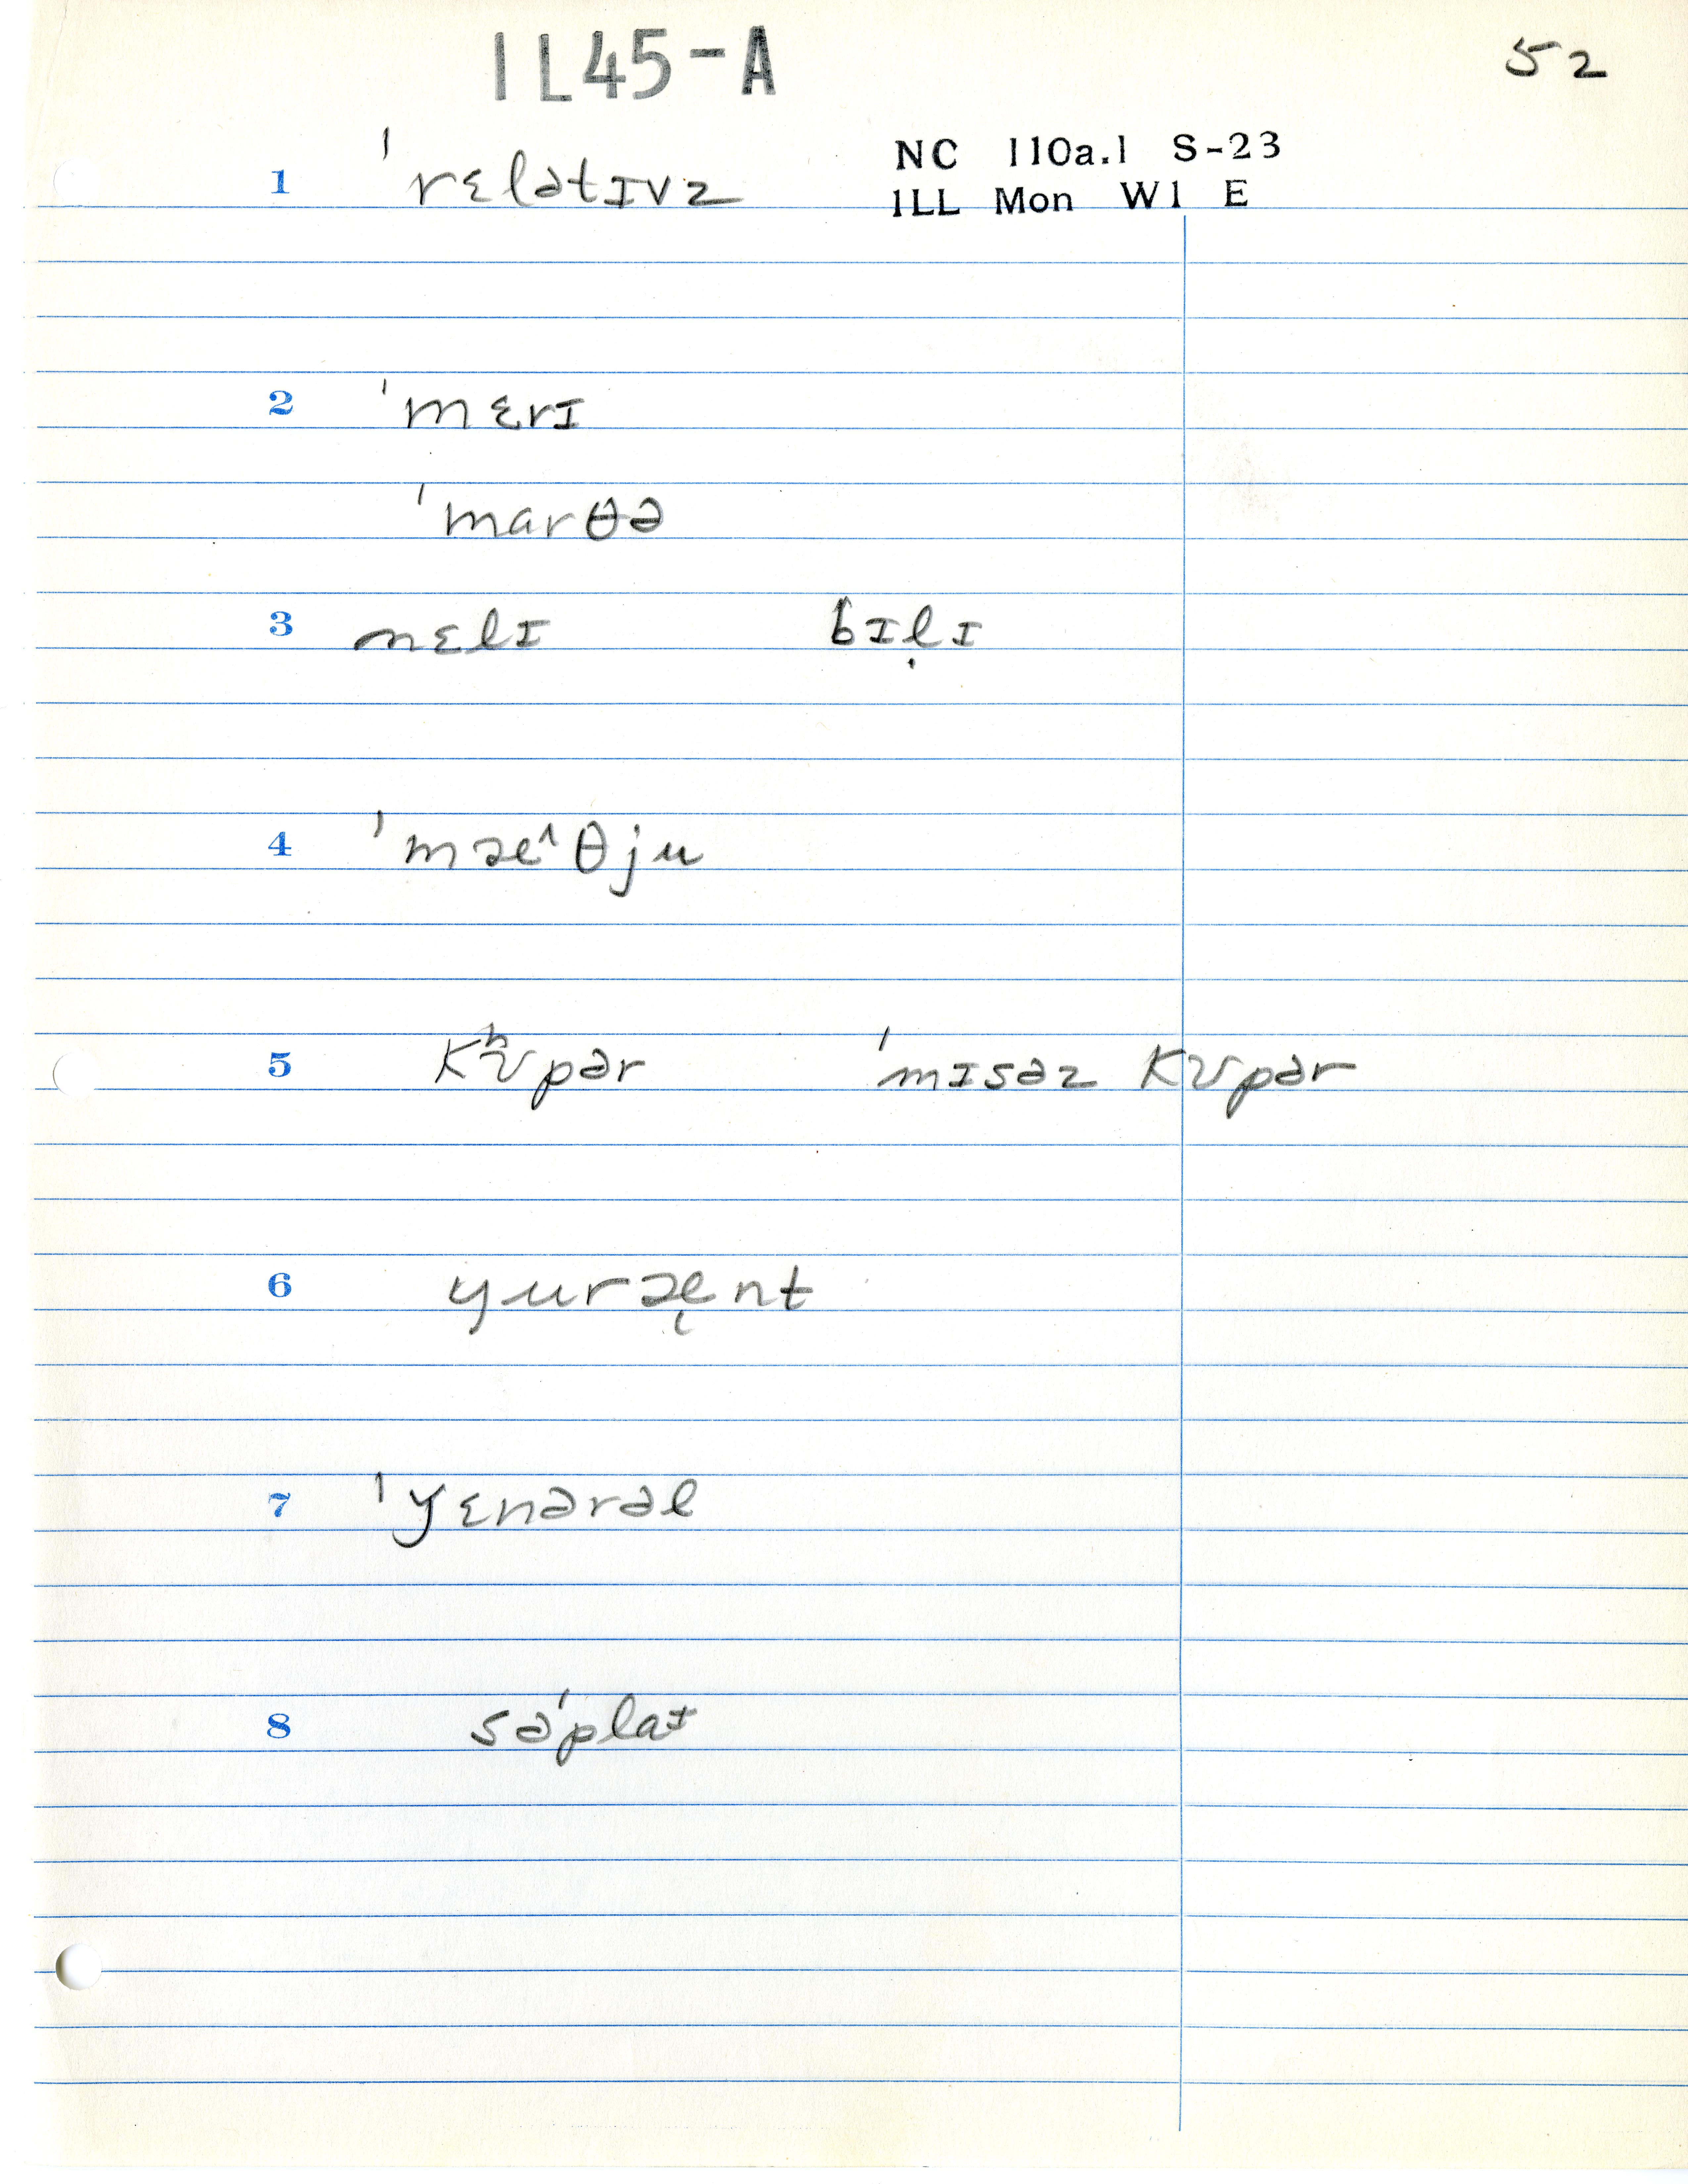 IL45-A
52
NC 110a.1 S-23
ILL Mon W1 E
1 ˈrɛlətɪvz
2 ˈmɛrɪ
ˈmarθə
3 nɛlɪ bɪḷɪ
4 ˈmæ˄θju
5 Kʰʊpər ˈmɪsəz Kʊpər
6 yuræ̨nt
7 ˈyɛnərəl
8 səˈplaɪ